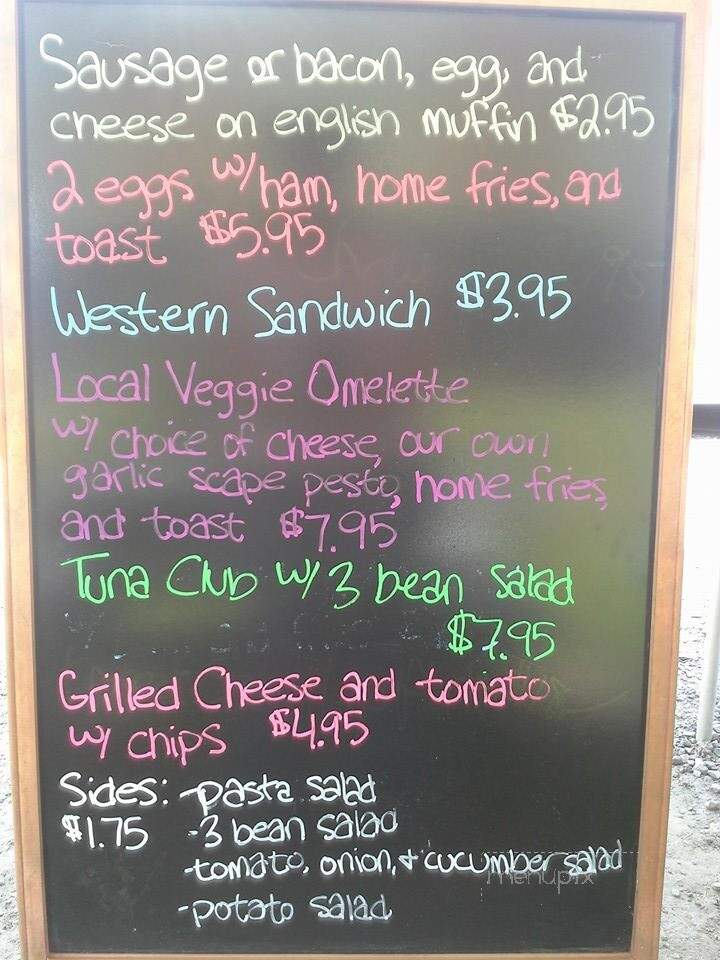 Sausage or bacon, egg, and
cheese on english muffin $2.95
2 eggs w/ ham, home fries, and
toast $5.95
Western Sandwich $3.95
Local Veggie Omelette
w/ choice of cheese, our own
garlic scape pesto, home fries
and toast $7.95
Tuna Club w/ 3 bean salad
$7.95
Grilled Cheese and tomato
w/ chips $4.95
Sides: -pasta salad
$1.75 -3 bean salad
-tomato, onion, + cucumber salad
menupix
-potato salad